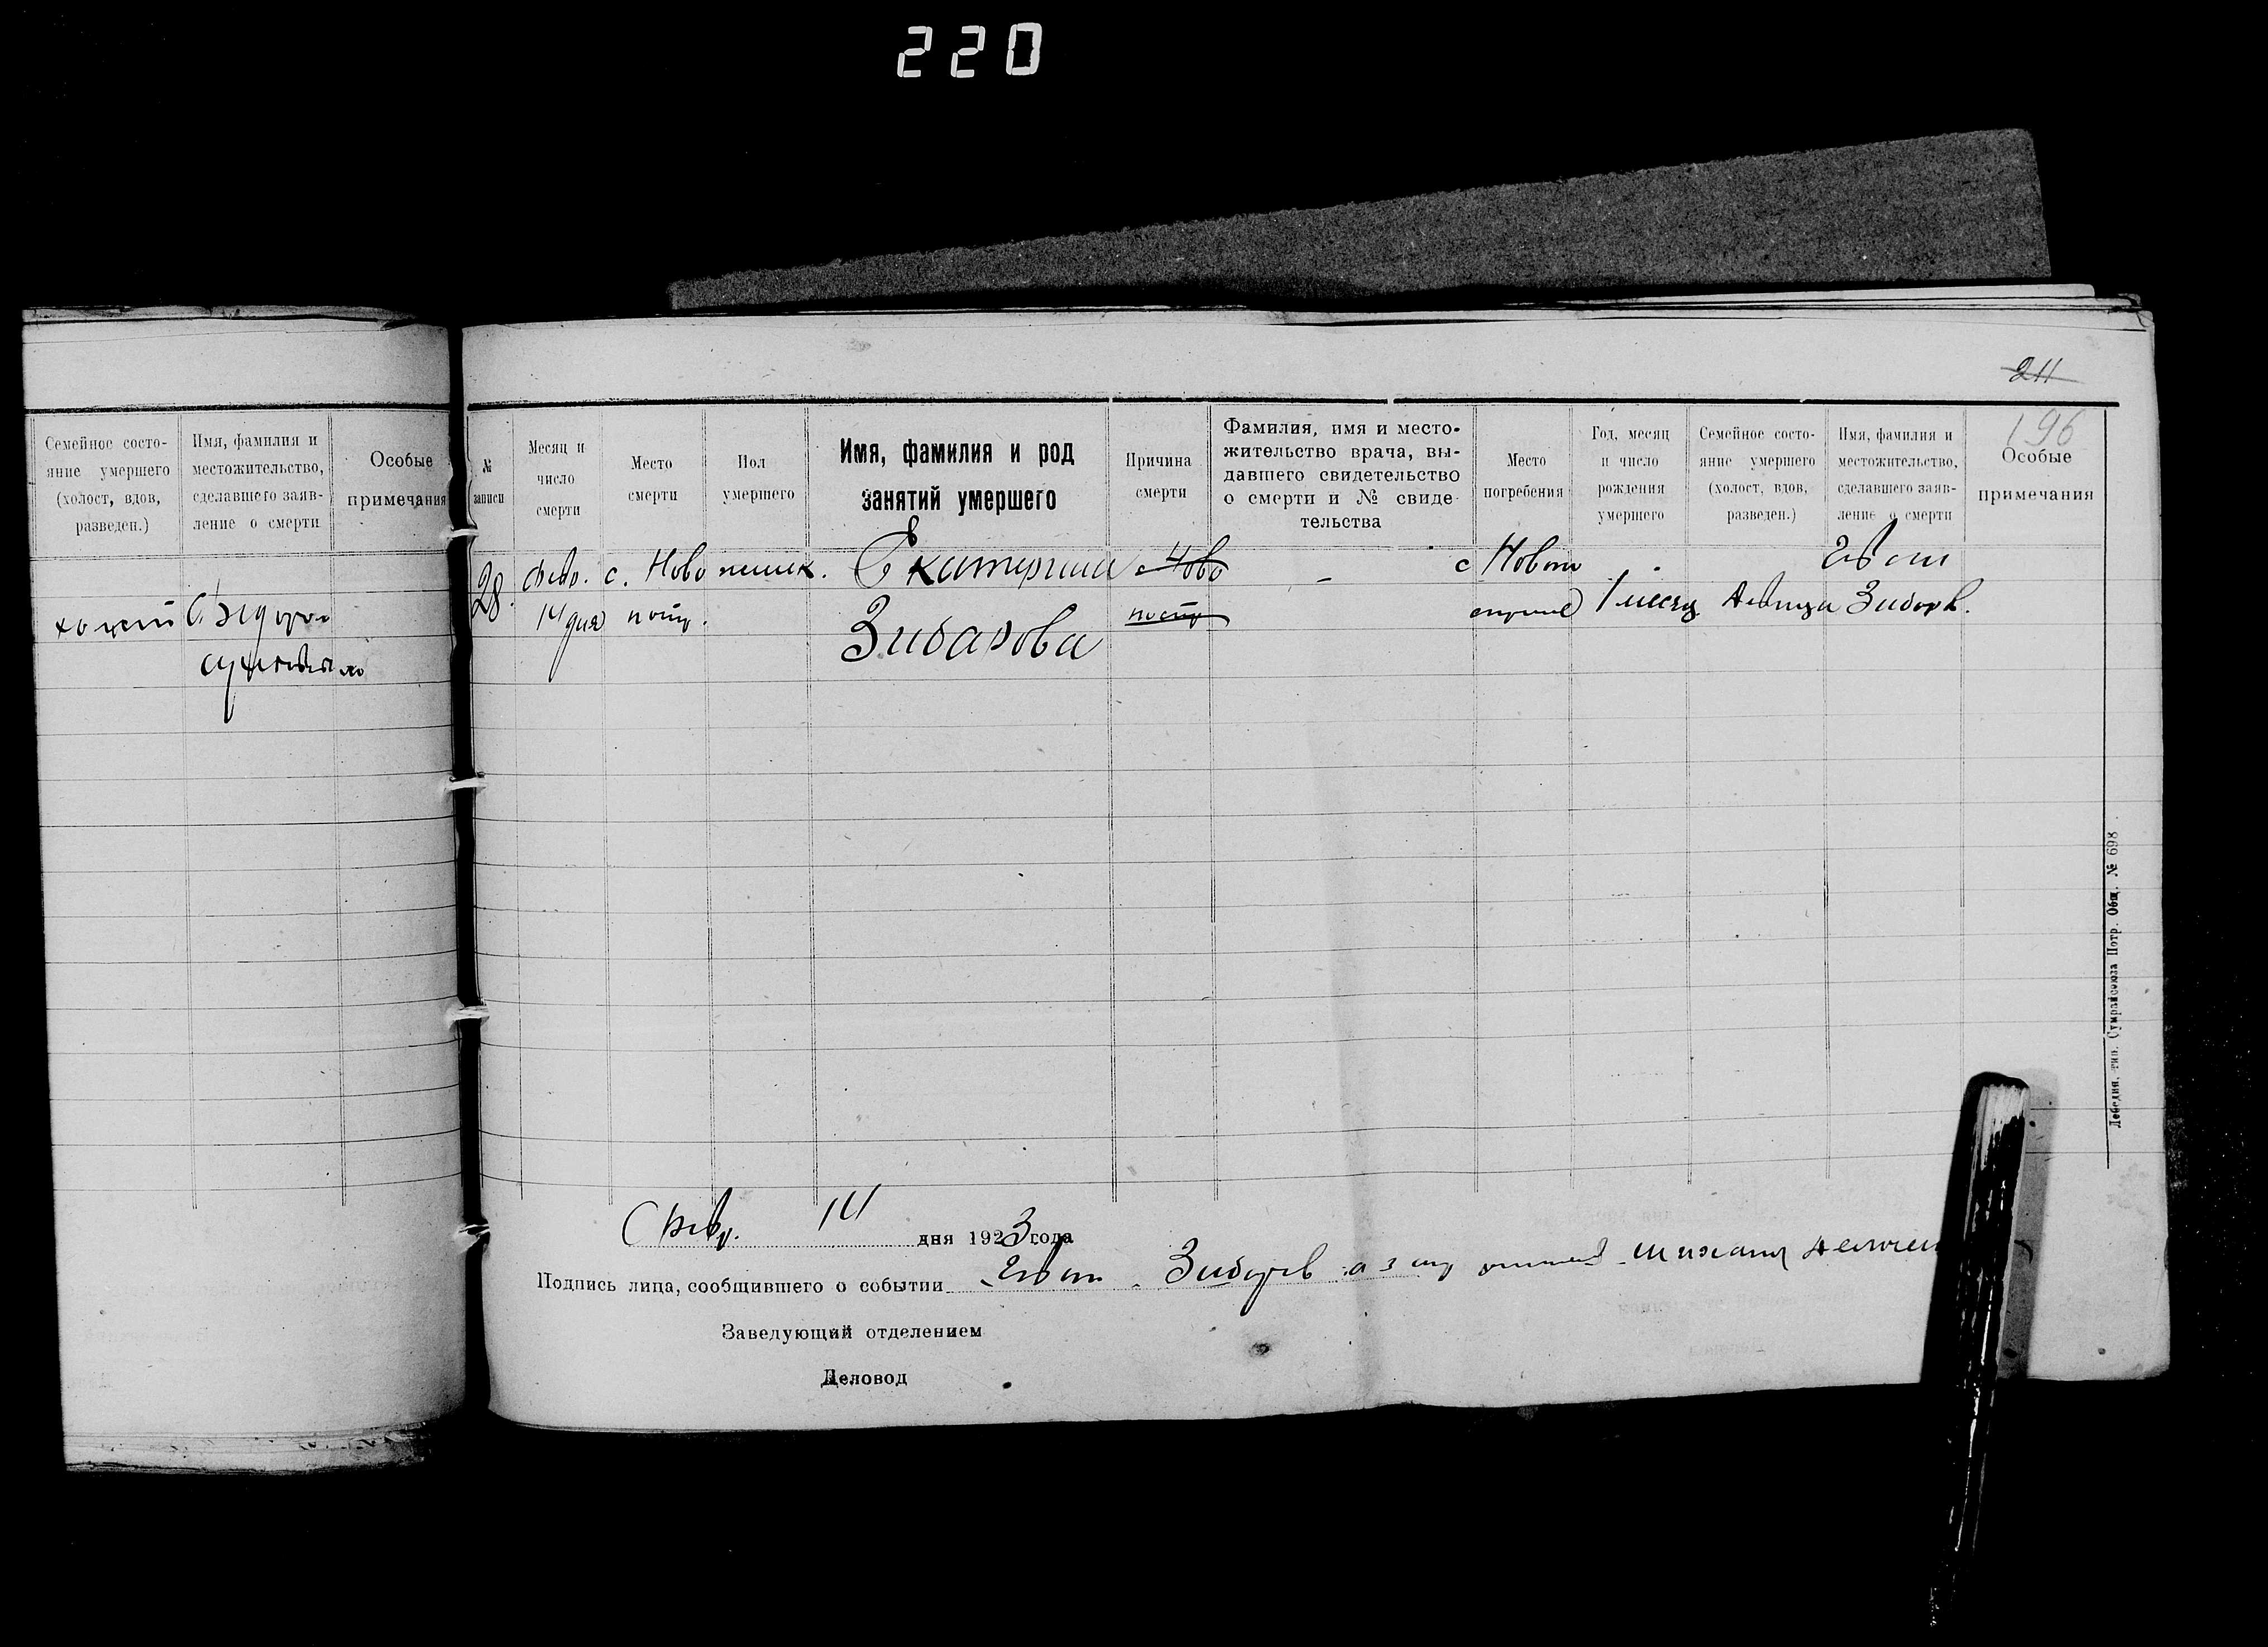 220
211
196
Семейное состо-
яние умершего
(холост, вдов,
разведен.)
Имя, фамилия и
местожительство,
сделавшего заяв-
ление о смерти
Особые
примечания
№
записи
Месяц и
число
смерти
Место
смерти
Пол
умершего
Имя, фамилия и род
занятий умершего
Причина
смерти
Фамилия, имя и место-
жительство врача, вы-
давшего свидетельство
о смерти и № свиде-
тельства
Место
погребения
Год, месяц
и число
рождения
умершего
Семейное состо-
яние умершего
(холост, вдов,
разведен.)
Имя, фамилия и
местожительство,
сделавшего заяв-
ление о смерти
Особые
примечания
28. февр. с. Ново Екатерина Ново - с
14 дня 1 месяц девица Зибарв.
Зибарова
Февр. 14 дня 1923 года
Подпись лица, сообщившего о событии Зибарев
Заведующий отделением
Деловод
Лебедин. тип. Сумрайсоюза Потр. Общ. № 698